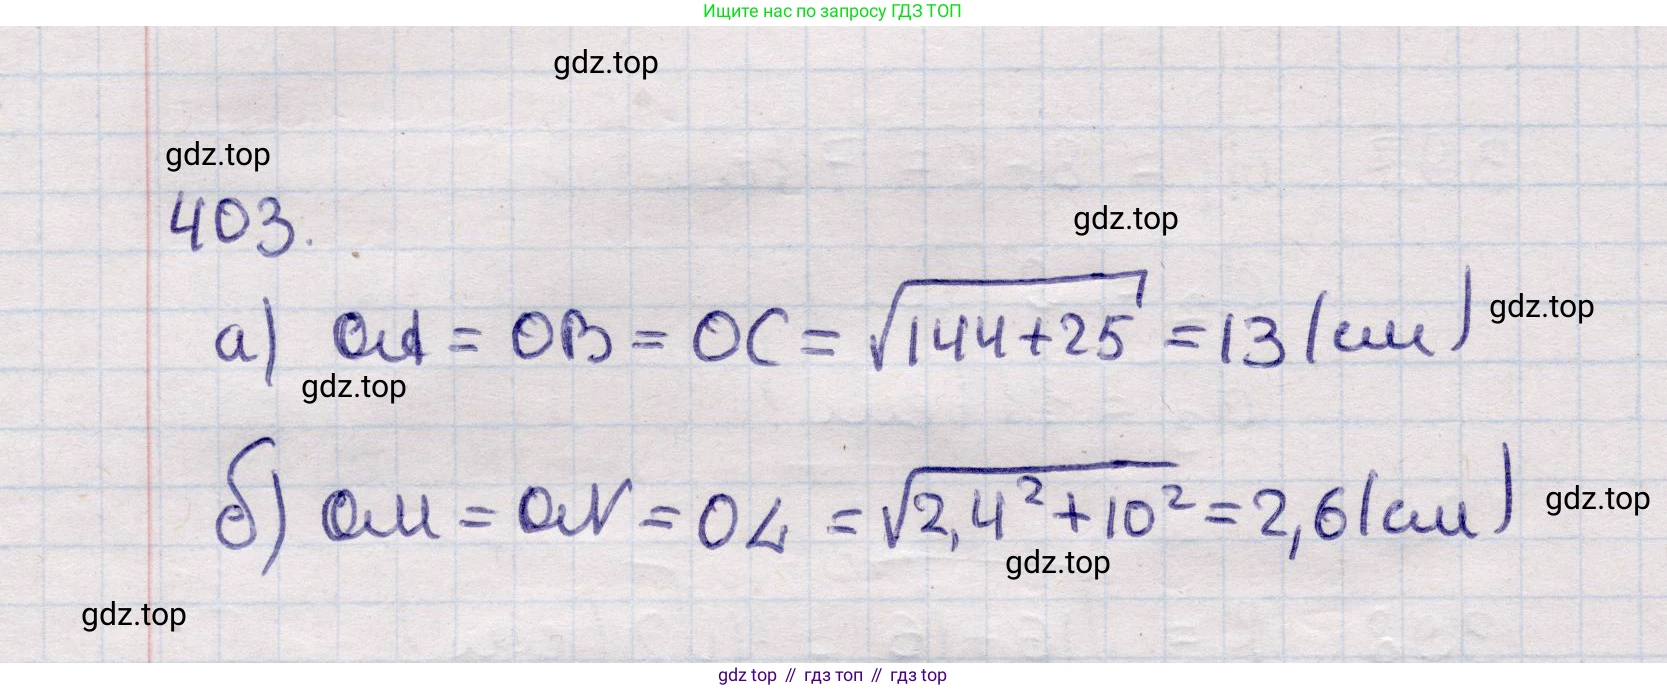 Ищите нас по запросу ГДЗ ТОП
gdz.top
gdz.top
403.
gdz.top
а) OA = OB = OC = √144+25 = 13 (см)
gdz.top
gdz.top
б) OM = ON = OL = √2,4² + 10² = 2,6 (см)
gdz.top
gdz.top
gdz.top
gdz top // гдз топ // gdz top